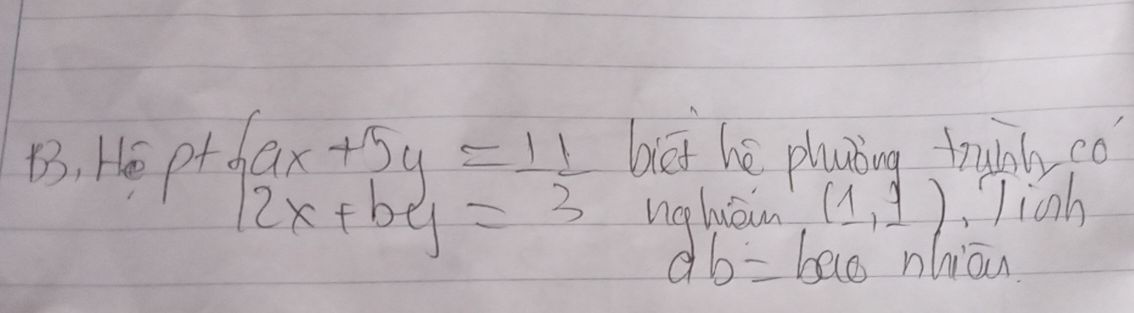 13, Hệ pt { ax + 5y = 11 biết hệ phương trình có
2x + by = 3 nghiệm (1, 1). Tính
ab = bao nhiêu.